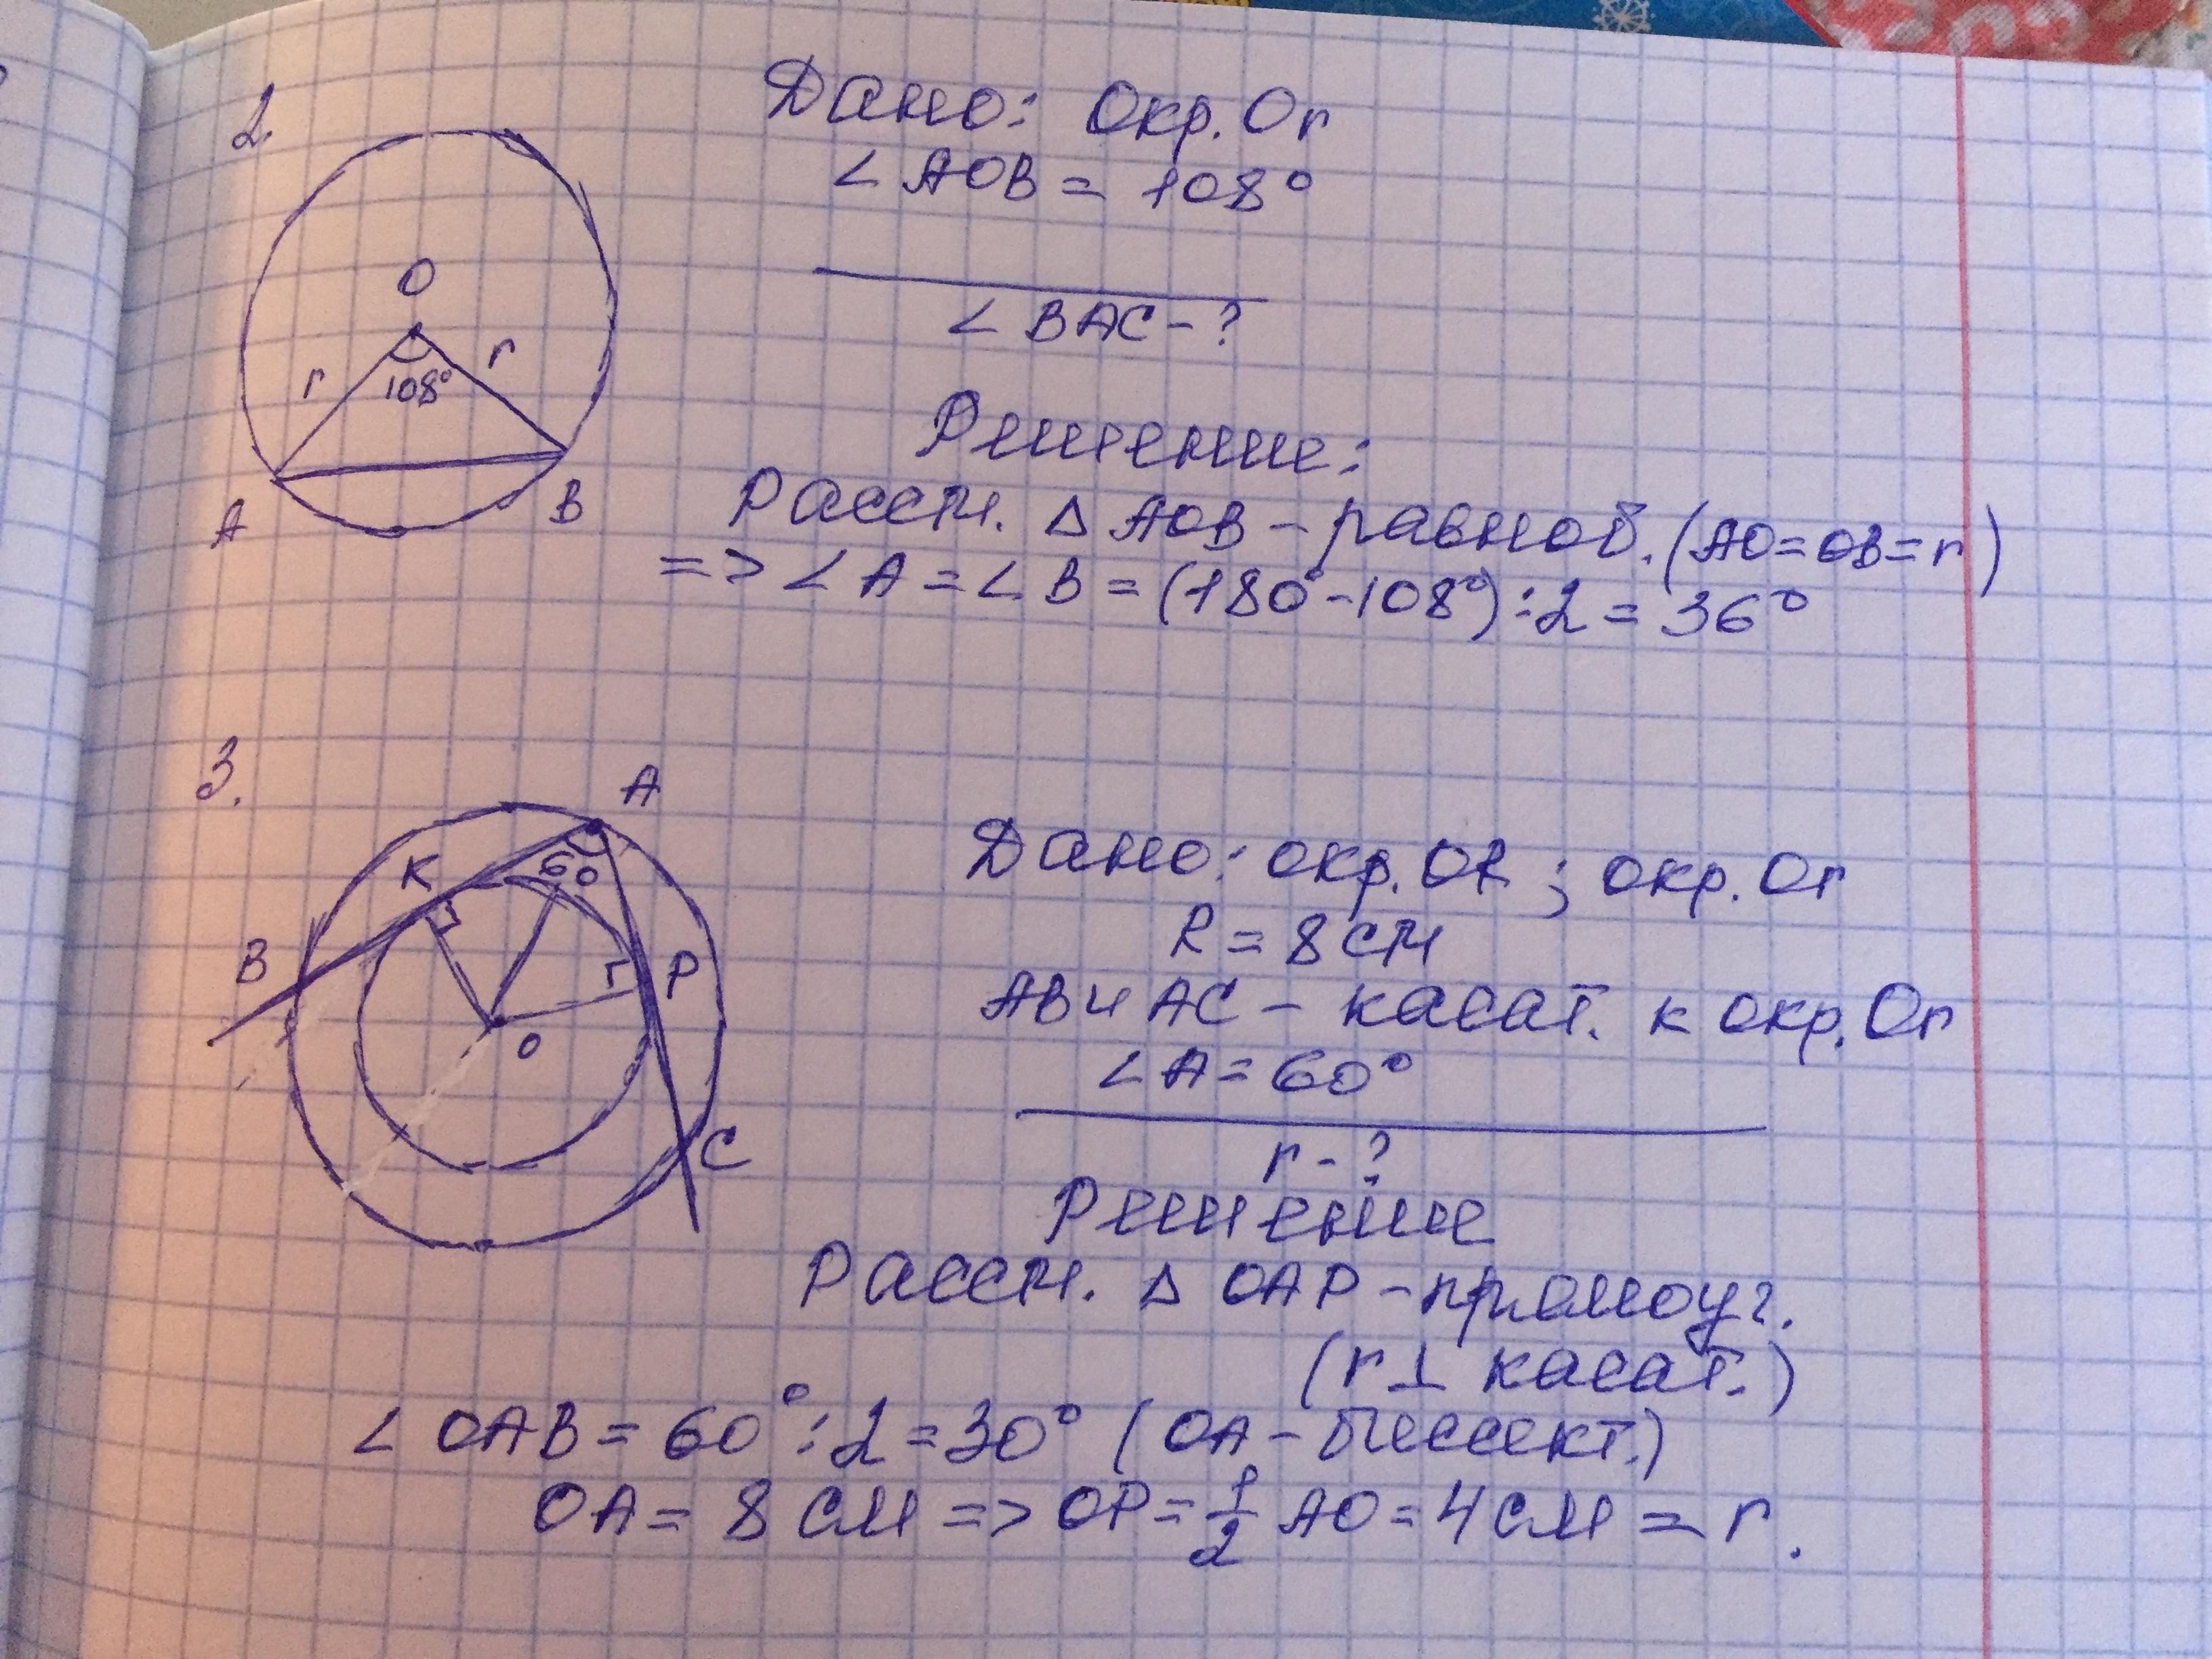 2.
Дано: Окр. Or
∠AOB = 108°
∠BAC - ?
O
r r
108°
A B
Решение:
Рассм. △ AOB - равноб. (AO=OB=r)
=> ∠A = ∠B = (180°-108°):2 = 36°
3.
A
K 60
B r P
O
C
Дано: окр. OR ; окр. Or
R = 8 см
AB и AC - касат. к окр. Or
∠A = 60°
r - ?
Решение
Рассм. △ OAP - прямоуг.
(r ⊥ касат.)
∠OAB = 60° : 2 = 30° (OA - биссект.)
OA = 8 см => OP = 1/2 AO = 4 см = r.